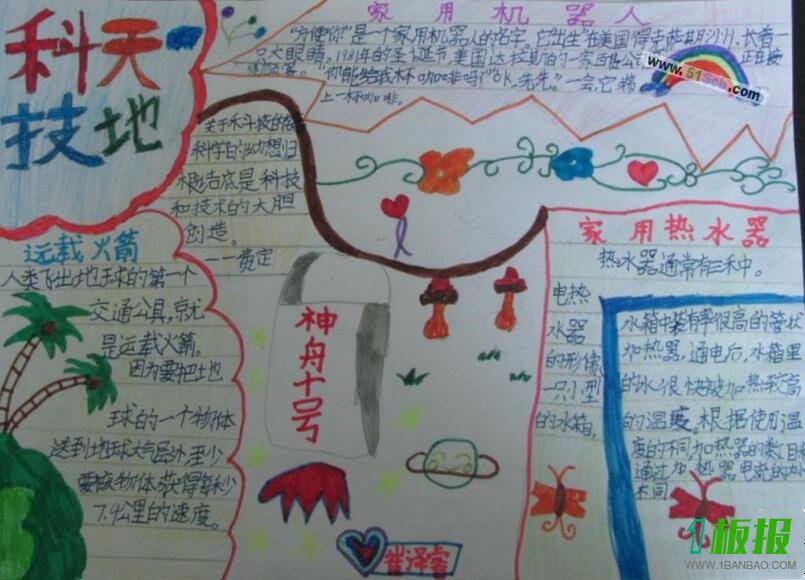 科天
技地
家用机器人
"方便你"是一个家用机器人的名字,它"出生"在美国得克萨斯州,长着
一只大眼睛。1981年的圣诞节,美国达拉斯的一家百货公
正在接
"你能给我杯咖啡吗?"Ok,先生。"一会,它端
上一杯咖啡。
www.51Scb.com
关于科技的
科学的幻想归
根结底是科技
和技术的大胆
创造。
——贵定
运载火箭
人类飞出地球的第一个
交通公具,京尤
是运载火箭。
因为要把地
球的一个物体
送到地球大气层外,至少
要使物体获得每秒
7.9公里的速度。
神舟十号
崔泽睿
家用热水器
热水器通常有三种。
电热
水器
的形像
一只小型
的水箱,
水箱中装有率很高的管状
加热器,通电后,水箱里
的水很快被加热较高
的温度。根据使用温
度的不同,加热器的数目
通过加热器电流的大
不同
1板报
WWW.1BANBAO.COM